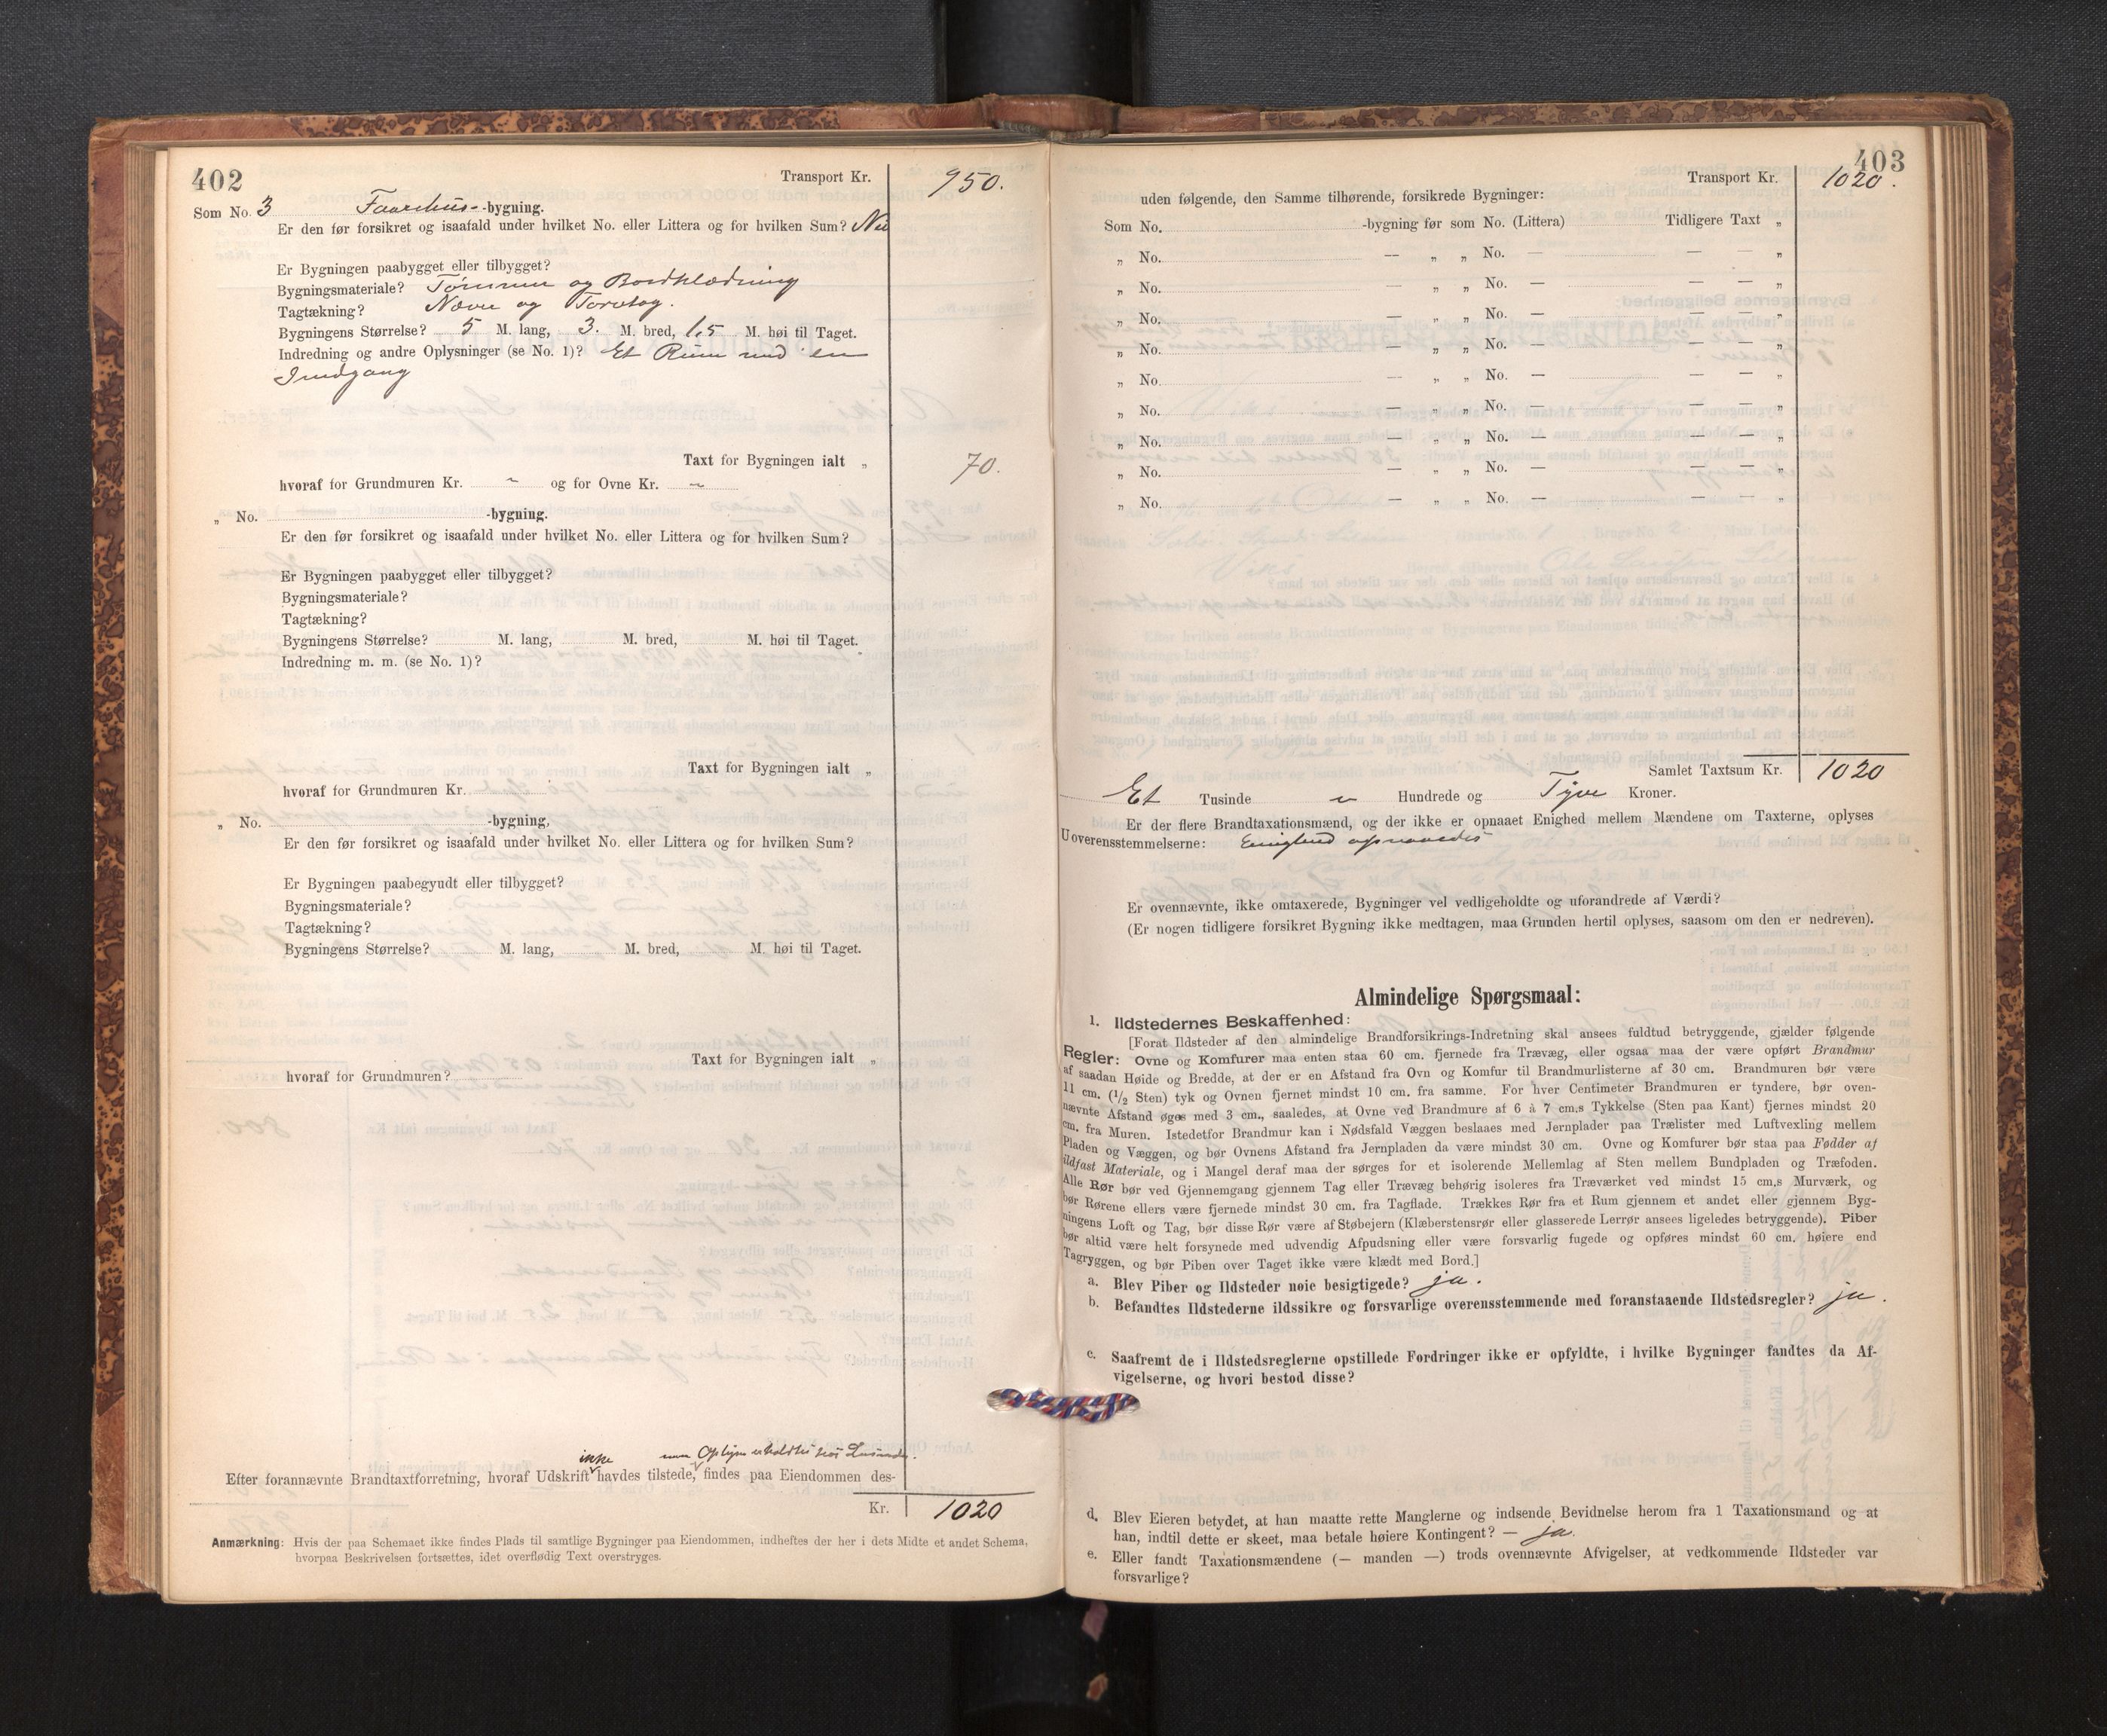 402
Transport Kr. 950.
Som No. 3 Faarehus- -bygning.
Er den før forsikret og isaafald under hvilket No. eller Littera og for hvilken Sum? Nei
Er Bygningen paabygget eller tilbygget?
Bygningsmateriale? Tømmer og Bordklædning
Tagtækning? Næver og Torvtag.
Bygningens Størrelse? 5 M. lang, 3. M. bred, 1,5 M. høi til Taget.
Indredning og andre Oplysninger (se No. 1)? Et Rum med en
Indgang
Taxt for Bygningen ialt „ 70.
hvoraf for Grundmuren Kr. „ og for Ovne Kr. „
„ No. -bygning.
Er den før forsikret og isaafald under hvilket No. eller Littera og for hvilken Sum?
Er Bygningen paabygget eller tilbygget?
Bygningsmateriale?
Tagtækning?
Bygningens Størrelse? M. lang, M. bred, M. høi til Taget.
Indredning m. m. (se No. 1)?
Taxt for Bygningen ialt „
hvoraf for Grundmuren Kr.
„ No. -bygning,
Er den før forsikret og isaafald under hvilket No. eller Littera og for hvilken Sum?
Er Bygningen paabegyudt eller tilbygget?
Bygningsmateriale?
Tagtækning?
Bygningens Størrelse? M. lang, M. bred, M. høi til Taget.
Taxt for Bygningen ialt „
hvoraf for Grundmuren?
ikke men Oplysn erholdtes hos
Efter forannævnte Brandtaxtforretning, hvoraf Udskrift havdes tilstede, findes paa Eiendommen des-
Kr. 1020
Anmærkning: Hvis der paa Schemaet ikke findes Plads til samtlige Bygninger paa Eiendommen, indheftes der her i dets Midte et andet Schema,
hvorpaa Beskrivelsen fortsættes, idet overflødig Text overstryges.
403
Transport Kr. 1020.
uden følgende, den Samme tilhørende, forsikrede Bygninger:
Som No. -bygning før som No. (Littera) Tidligere Taxt „
„ No. — „ „ No. — — — „
„ No. — „ „ No. — — — „
„ No. — „ „ No. — — — „
„ No. — „ „ No. — — — „
„ No. — „ „ No. — — — „
„ No. — „ „ No. — — — „
„ No. — „ „ No. — — — „
„ No. — „ „ No. — — — „
„ No. — „ „ No. — — — „
Samlet Taxtsum Kr. 1020
Et Tusinde „ Hundrede og Tyve Kroner.
Er der flere Brandtaxationsmænd, og der ikke er opnaaet Enighed mellem Mændene om Taxterne, oplyses
Uoverensstemmelserne: Enighed opnaaedes
Er ovennævnte, ikke omtaxerede, Bygninger vel vedligeholdte og uforandrede af Værdi?
(Er nogen tidligere forsikret Bygning ikke medtagen, maa Grunden hertil oplyses, saasom om den er nedreven).
Almindelige Spørgsmaal:
1. Ildstedernes Beskaffenhed:
[Forat Ildsteder af den almindelige Brandforsikrings-Indretning skal ansees fuldtud betryggende, gjælder følgende
Regler: Ovne og Komfurer maa enten staa 60 cm. fjernede fra Trævæg, eller ogsaa maa der være opført Brandmur
af saadan Høide og Bredde, at der er en Afstand fra Ovn og Komfur til Brandmurlisterne af 30 cm. Brandmuren bør være
11 cm. (1/2 Sten) tyk og Ovnen fjernet mindst 10 cm. fra samme. For hver Centimeter Brandmuren er tyndere, bør oven-
nævnte Afstand øges med 3 cm., saaledes, at Ovne ved Brandmure af 6 à 7 cm.s Tykkelse (Sten paa Kant) fjernes mindst 20
cm. fra Muren. Istedetfor Brandmur kan i Nødsfald Væggen beslaaes med Jernplader paa Trælister med Luftvexling mellem
Pladen og Væggen, og bør Ovnens Afstand fra Jernpladen da være mindst 30 cm. Ovne og Komfurer bør staa paa Fødder af
ildfast Materiale, og i Mangel deraf maa der sørges for et isolerende Mellemlag af Sten mellem Bundpladen og Træfoden.
Alle Rør bør ved Gjennemgang gjennem Tag eller Trævæg behørig isoleres fra Træværket ved mindst 15 cm,s Murværk, og
bør Rørene ellers være fjernede mindst 30 cm. fra Tagflade. Trækkes Rør fra et Rum gjennem et andet eller gjennem Byg-
ningens Loft og Tag, bør disse Rør være af Støbejern (Klæberstensrør eller glasserede Lerrør ansees ligeledes betryggende). Piber
bør altid være helt forsynede med udvendig Afpudsning eller være forsvarlig fugede og opføres mindst 60 cm. høiere end
Tagryggen, og bør Piben over Taget ikke være klædt med Bord.]
a. Blev Piber og Ildsteder nøie besigtigede? ja.
b. Befandtes Ildstederne ildssikre og forsvarlige overensstemmende med foranstaaende Ildstedsregler? ja.
c. Saafremt de i Ildstedsreglerne opstillede Fordringer ikke er opfyldte, i hvilke Bygninger fandtes da Af-
vigelserne, og hvori bestod disse?
d. Blev Eieren betydet, at han maatte rette Manglerne og indsende Bevidnelse herom fra 1 Taxationsmand og at
han, indtil dette er skeet, maa betale høiere Kontingent? — ja.
e. Eller fandt Taxationsmændene (— manden —) trods ovennævnte Afvigelser, at vedkommende Ildsteder var
forsvarlige?